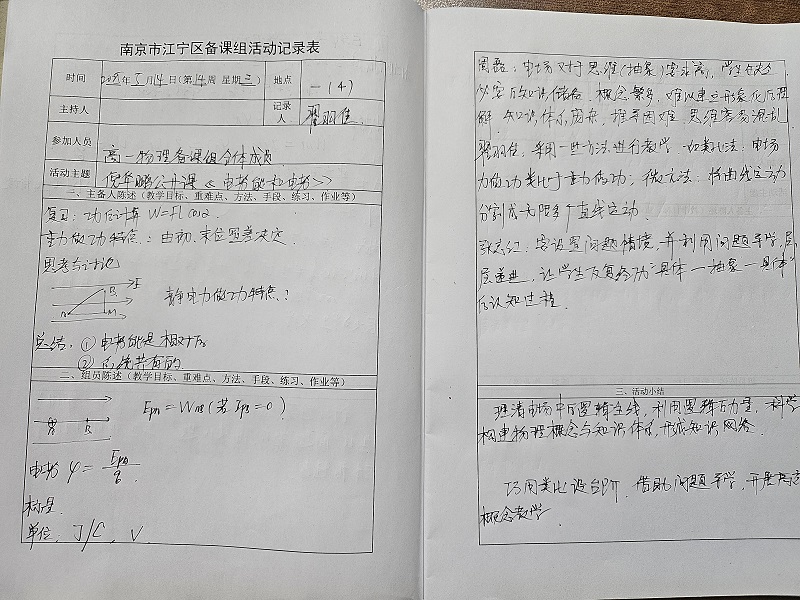 南京市江宁区备课组活动记录表
时间 2025年5月14日(第14周 星期三) 地点 一(4)
主持人 记录人 翟羽佳
参加人员 高一物理备课组全体成员
活动主题 公开课《电势能和电势》
一、主备人陈述(教学目标、重难点、方法、手段、练习、作业等)
复习:功的计算 W=FLcosα
重力做功特点:由初、末位置决定
思考与讨论
E
B
A M
静电力做功特点:
总结:①电势能是相对的
②系统共有的
二、组员陈述(教学目标、重难点、方法、手段、练习、作业等)
EpA=WAB(若EpB=0)
A B
电势 φ=EpA/q
标量
单位:J/C、V
周磊:电场对于思维(抽象)要求高,学生缺乏
必要的知识储备。概念繁多,难以建立形象化的理
解 知识体系庞杂,推导困难 思维容易混乱
翟羽佳:采用一些方法进行教学 如类比法:电场
力做功类比于重力做功,微元法:将曲线运动
分割成无限多个直线运动
:要设置问题情境,并利用问题导学,层
层递进,让学生反复经历“具体—抽象—具体”
的认知过程
三、活动小结
理清电场中的逻辑主线,利用逻辑的力量,科学
构建物理概念与知识体系,形成知识网络.
巧用类比设台阶,借助问题导学,开展高
概念教学